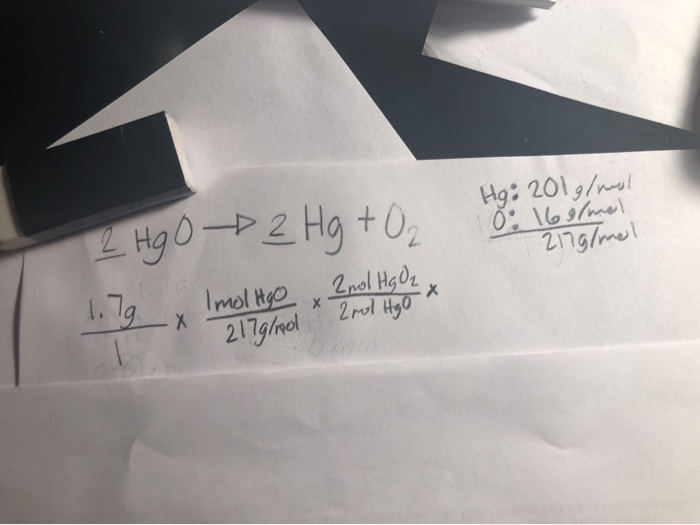 2 HgO → 2 Hg + O₂
Hg: 201 g/mol
O: 16 g/mol
217g/mol
1.7g/1 x 1mol HgO/217g/mol x 2mol HgO₂/2mol HgO x